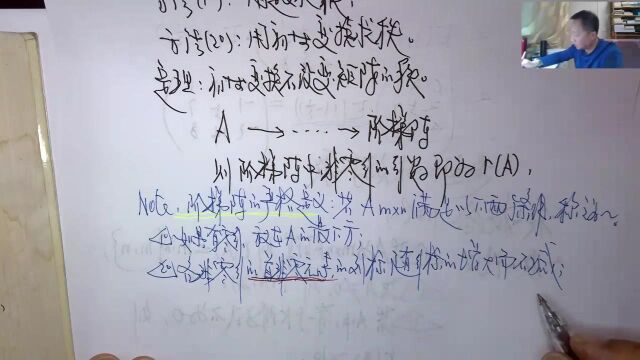 方法(1°): 用定义求秩。
方法(2°): 用初等变换求秩。
定理: 初等变换不改变矩阵的秩。
A → ····· → 阶梯阵
则阶梯阵中非零行的行数即为 r(A).
Note. 阶梯阵的严格定义: 若 A m×n 满足以下两条件, 称之~
<1°> 如果有零行, 放在A的最下方;
<2°> 各非零行的首非零元素的列标随行标的增大而不减;